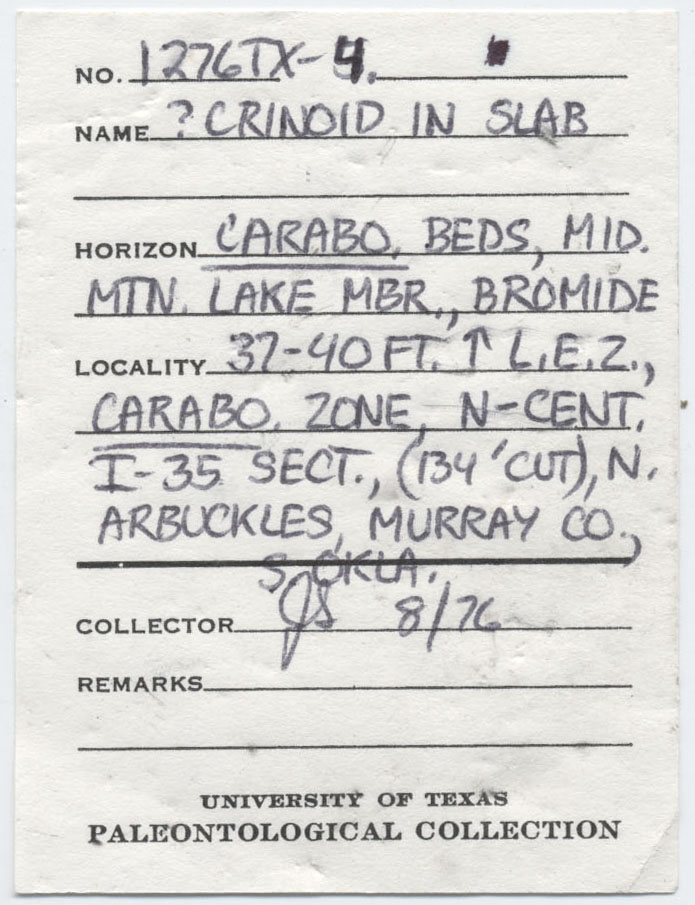 NO. 1276TX-4.
NAME ? CRINOID IN SLAB
HORIZON CARABO. BEDS, MID.
MTN. LAKE MBR., BROMIDE
LOCALITY 37-40 FT. ↑ L.E.Z.,
CARABO. ZONE, N-CENT.
I-35 SECT., (134 'CUT), N.
ARBUCKLES, MURRAY CO.,
S. OKLA.
COLLECTOR JS 8/76
REMARKS
UNIVERSITY OF TEXAS
PALEONTOLOGICAL COLLECTION